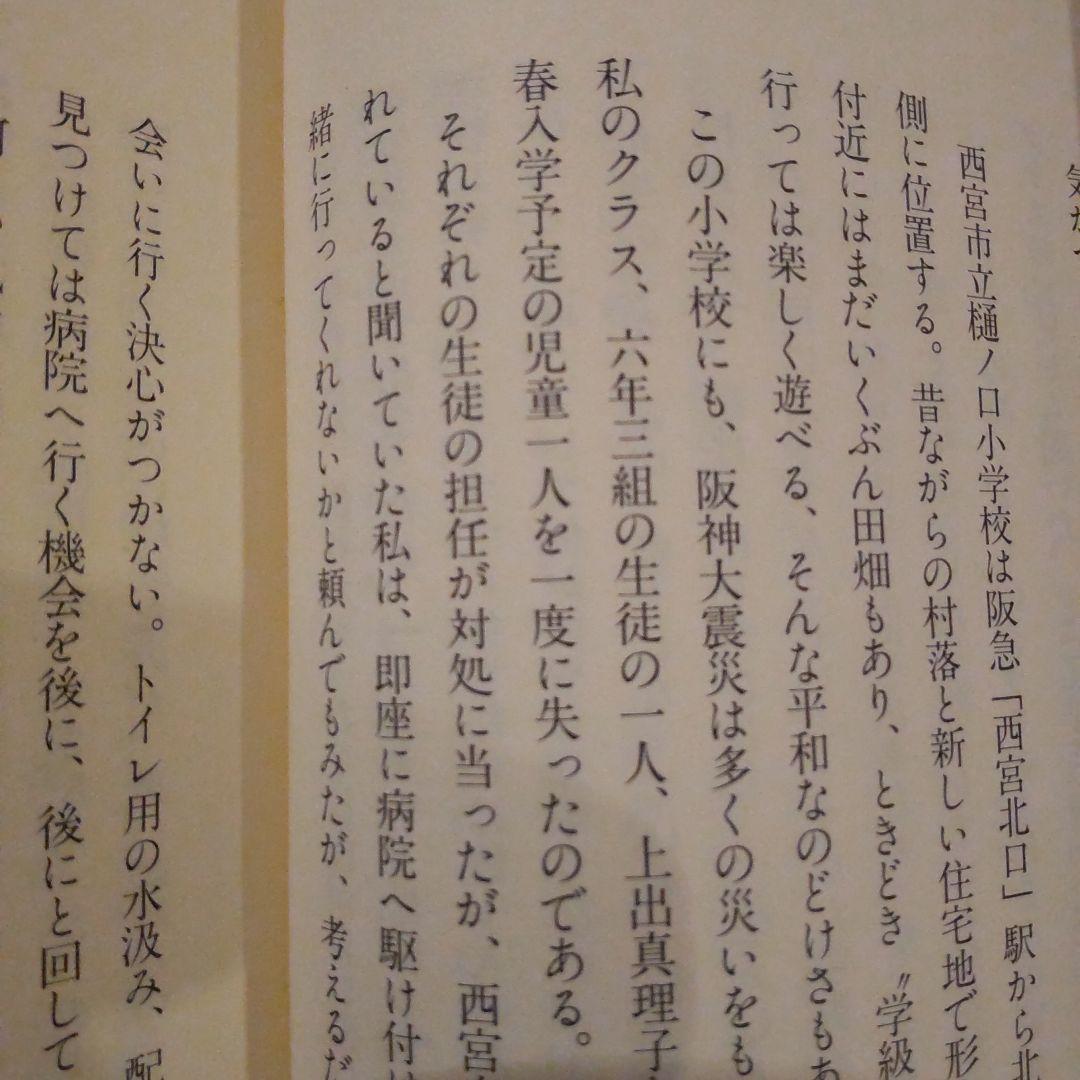 気がつ
西宮市立樋ノ口小学校は阪急「西宮北口」駅から北
側に位置する。昔ながらの村落と新しい住宅地で形
付近にはまだいくぶん田畑もあり、ときどき〝学級
行っては楽しく遊べる、そんな平和なのどけさもあ
この小学校にも、阪神大震災は多くの災いをも
私のクラス、六年三組の生徒の一人、上出真理子
春入学予定の児童一人を一度に失ったのである。
それぞれの生徒の担任が対処に当ったが、西宮
れていると聞いていた私は、即座に病院へ駆け付け
緒に行ってくれないかと頼んでもみたが、考えるだ
会いに行く決心がつかない。トイレ用の水汲み、配
見つけては病院へ行く機会を後に、後にと回して